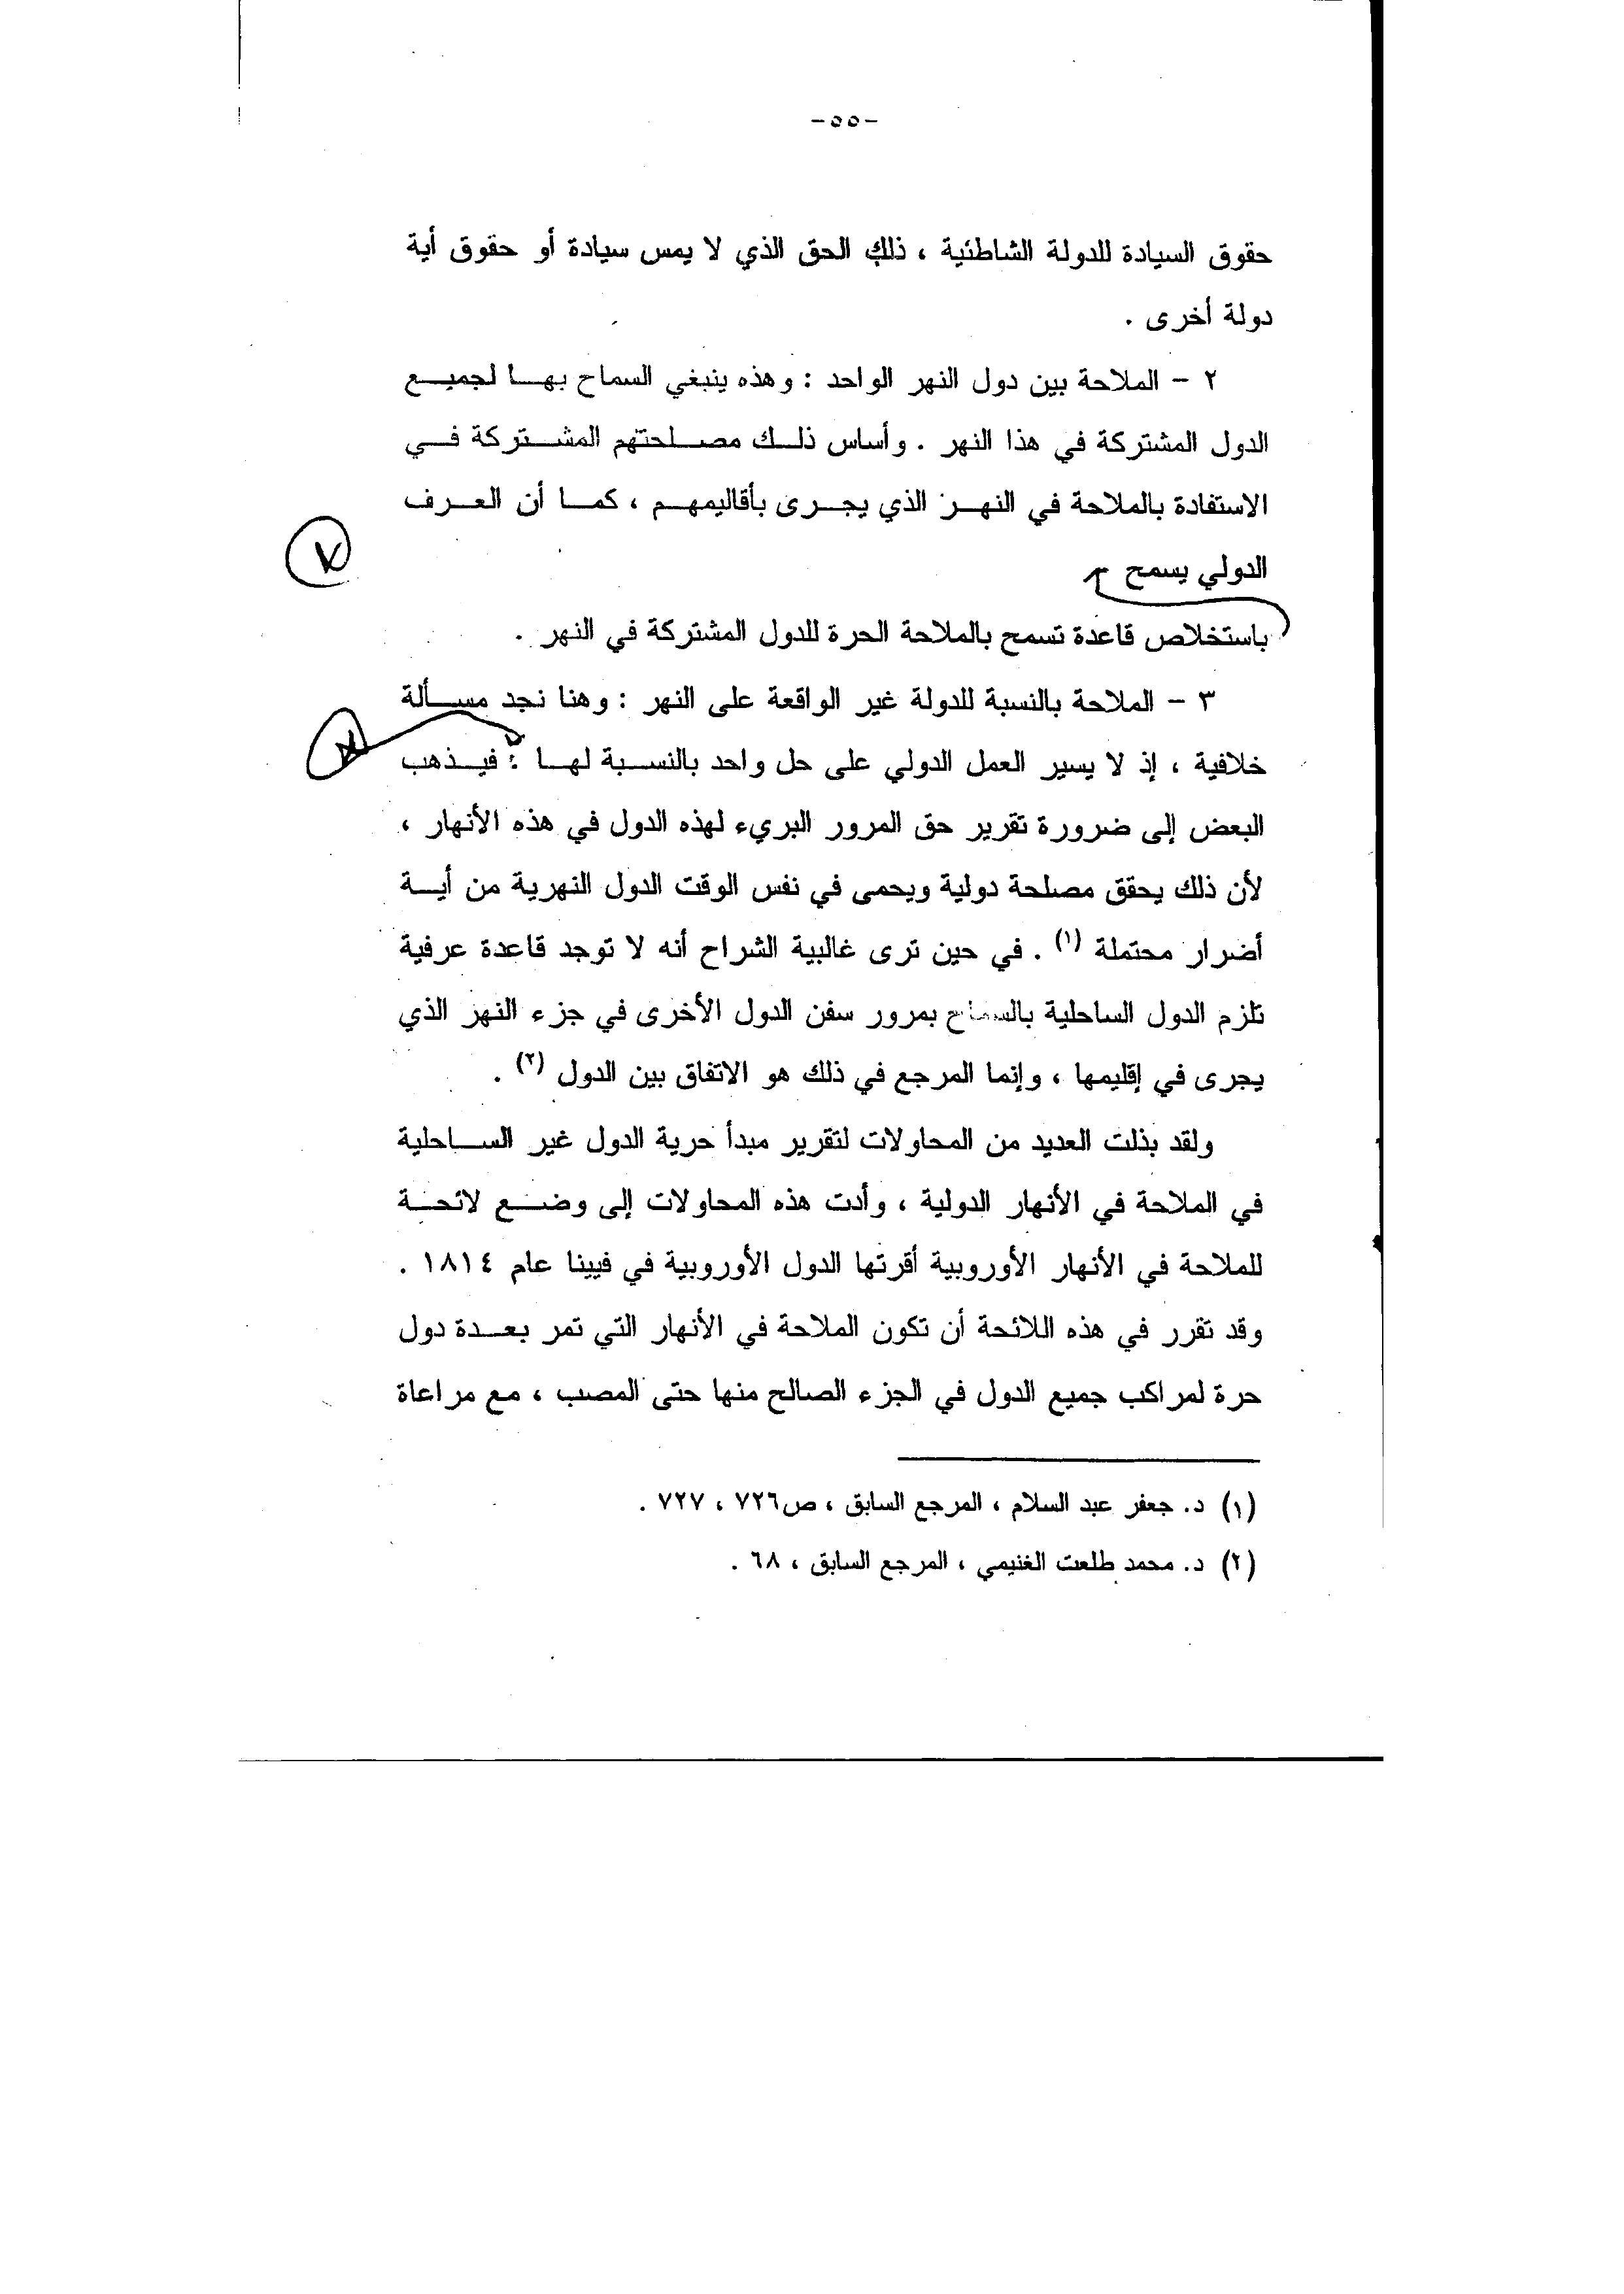 -٥٥-
حقوق السيادة للدولة الشاطئية ، ذلك الحق الذي لا يمس سيادة أو حقوق أية
دولة أخرى .
٢ - الملاحة بين دول النهر الواحد : وهذه ينبغي السماح بهـا لجميـع
الدول المشتركة في هذا النهر . وأساس ذلـك مصـلحتهم المشـتركة فـي
الاستفادة بالملاحة في النهـر الذي يجـرى بأقاليمهـم ، كمـا أن العـرف
الدولي يسمح
باستخلاص قاعدة تسمح بالملاحة الحرة للدول المشتركة في النهر .
٣ - الملاحة بالنسبة للدولة غير الواقعة على النهر : وهنا نجد مسـألة
خلافية ، إذ لا يسير العمل الدولي على حل واحد بالنسـبة لهـا : فيـذهب
البعض إلى ضرورة تقرير حق المرور البريء لهذه الدول في هذه الأنهار ،
لأن ذلك يحقق مصلحة دولية ويحمى في نفس الوقت الدول النهرية من أيـة
أضرار محتملة (١) . في حين ترى غالبية الشراح أنه لا توجد قاعدة عرفية
تلزم الدول الساحلية بالسماح بمرور سفن الدول الأخرى في جزء النهر الذي
يجرى في إقليمها ، وإنما المرجع في ذلك هو الاتفاق بين الدول (٢) .
ولقد بذلت العديد من المحاولات لتقرير مبدأ حرية الدول غير السـاحلية
في الملاحة في الأنهار الدولية ، وأدت هذه المحاولات إلى وضـع لائحـة
للملاحة في الأنهار الأوروبية أقرتها الدول الأوروبية في فيينا عام ١٨١٤ .
وقد تقرر في هذه اللائحة أن تكون الملاحة في الأنهار التي تمر بعـدة دول
حرة لمراكب جميع الدول في الجزء الصالح منها حتى المصب ، مع مراعاة
(١) د. جعفر عبد السلام ، المرجع السابق ، ص٧٢٦ ، ٧٢٧ .
(٢) د. محمد طلعت الغنيمي ، المرجع السابق ، ٦٨ .